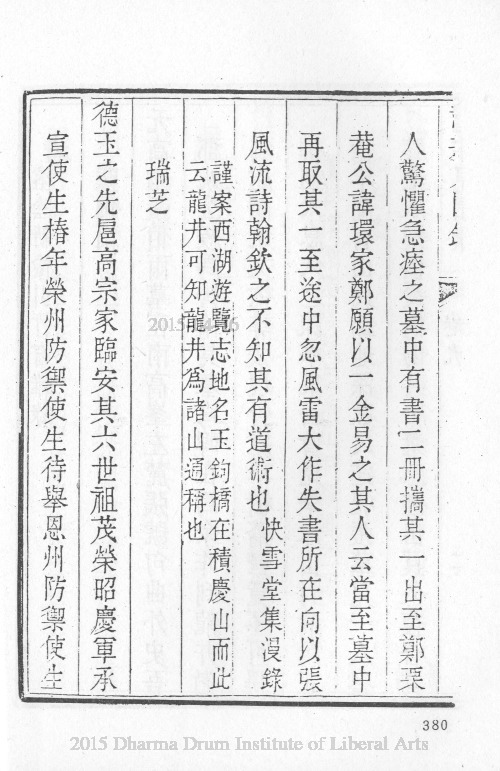 人驚懼急瘞之墓中有書二冊攜其一出至鄭栗
菴公諱環家鄭願以一金易之其人云當至墓中
再取其一至途中忽風雷大作失書所在向以張
風流詩翰欽之不知其有道術也 快雪堂集漫錄
謹案西湖遊覽志地名玉鉤橋在積慶山而此
云龍井可知龍井為諸山通稱也
瑞芝
德玉之先扈高宗家臨安其六世祖茂榮昭慶軍承
宣使生椿年榮州防禦使生待舉恩州防禦使生
380
2015 Dharma Drum Institute of Liberal Arts